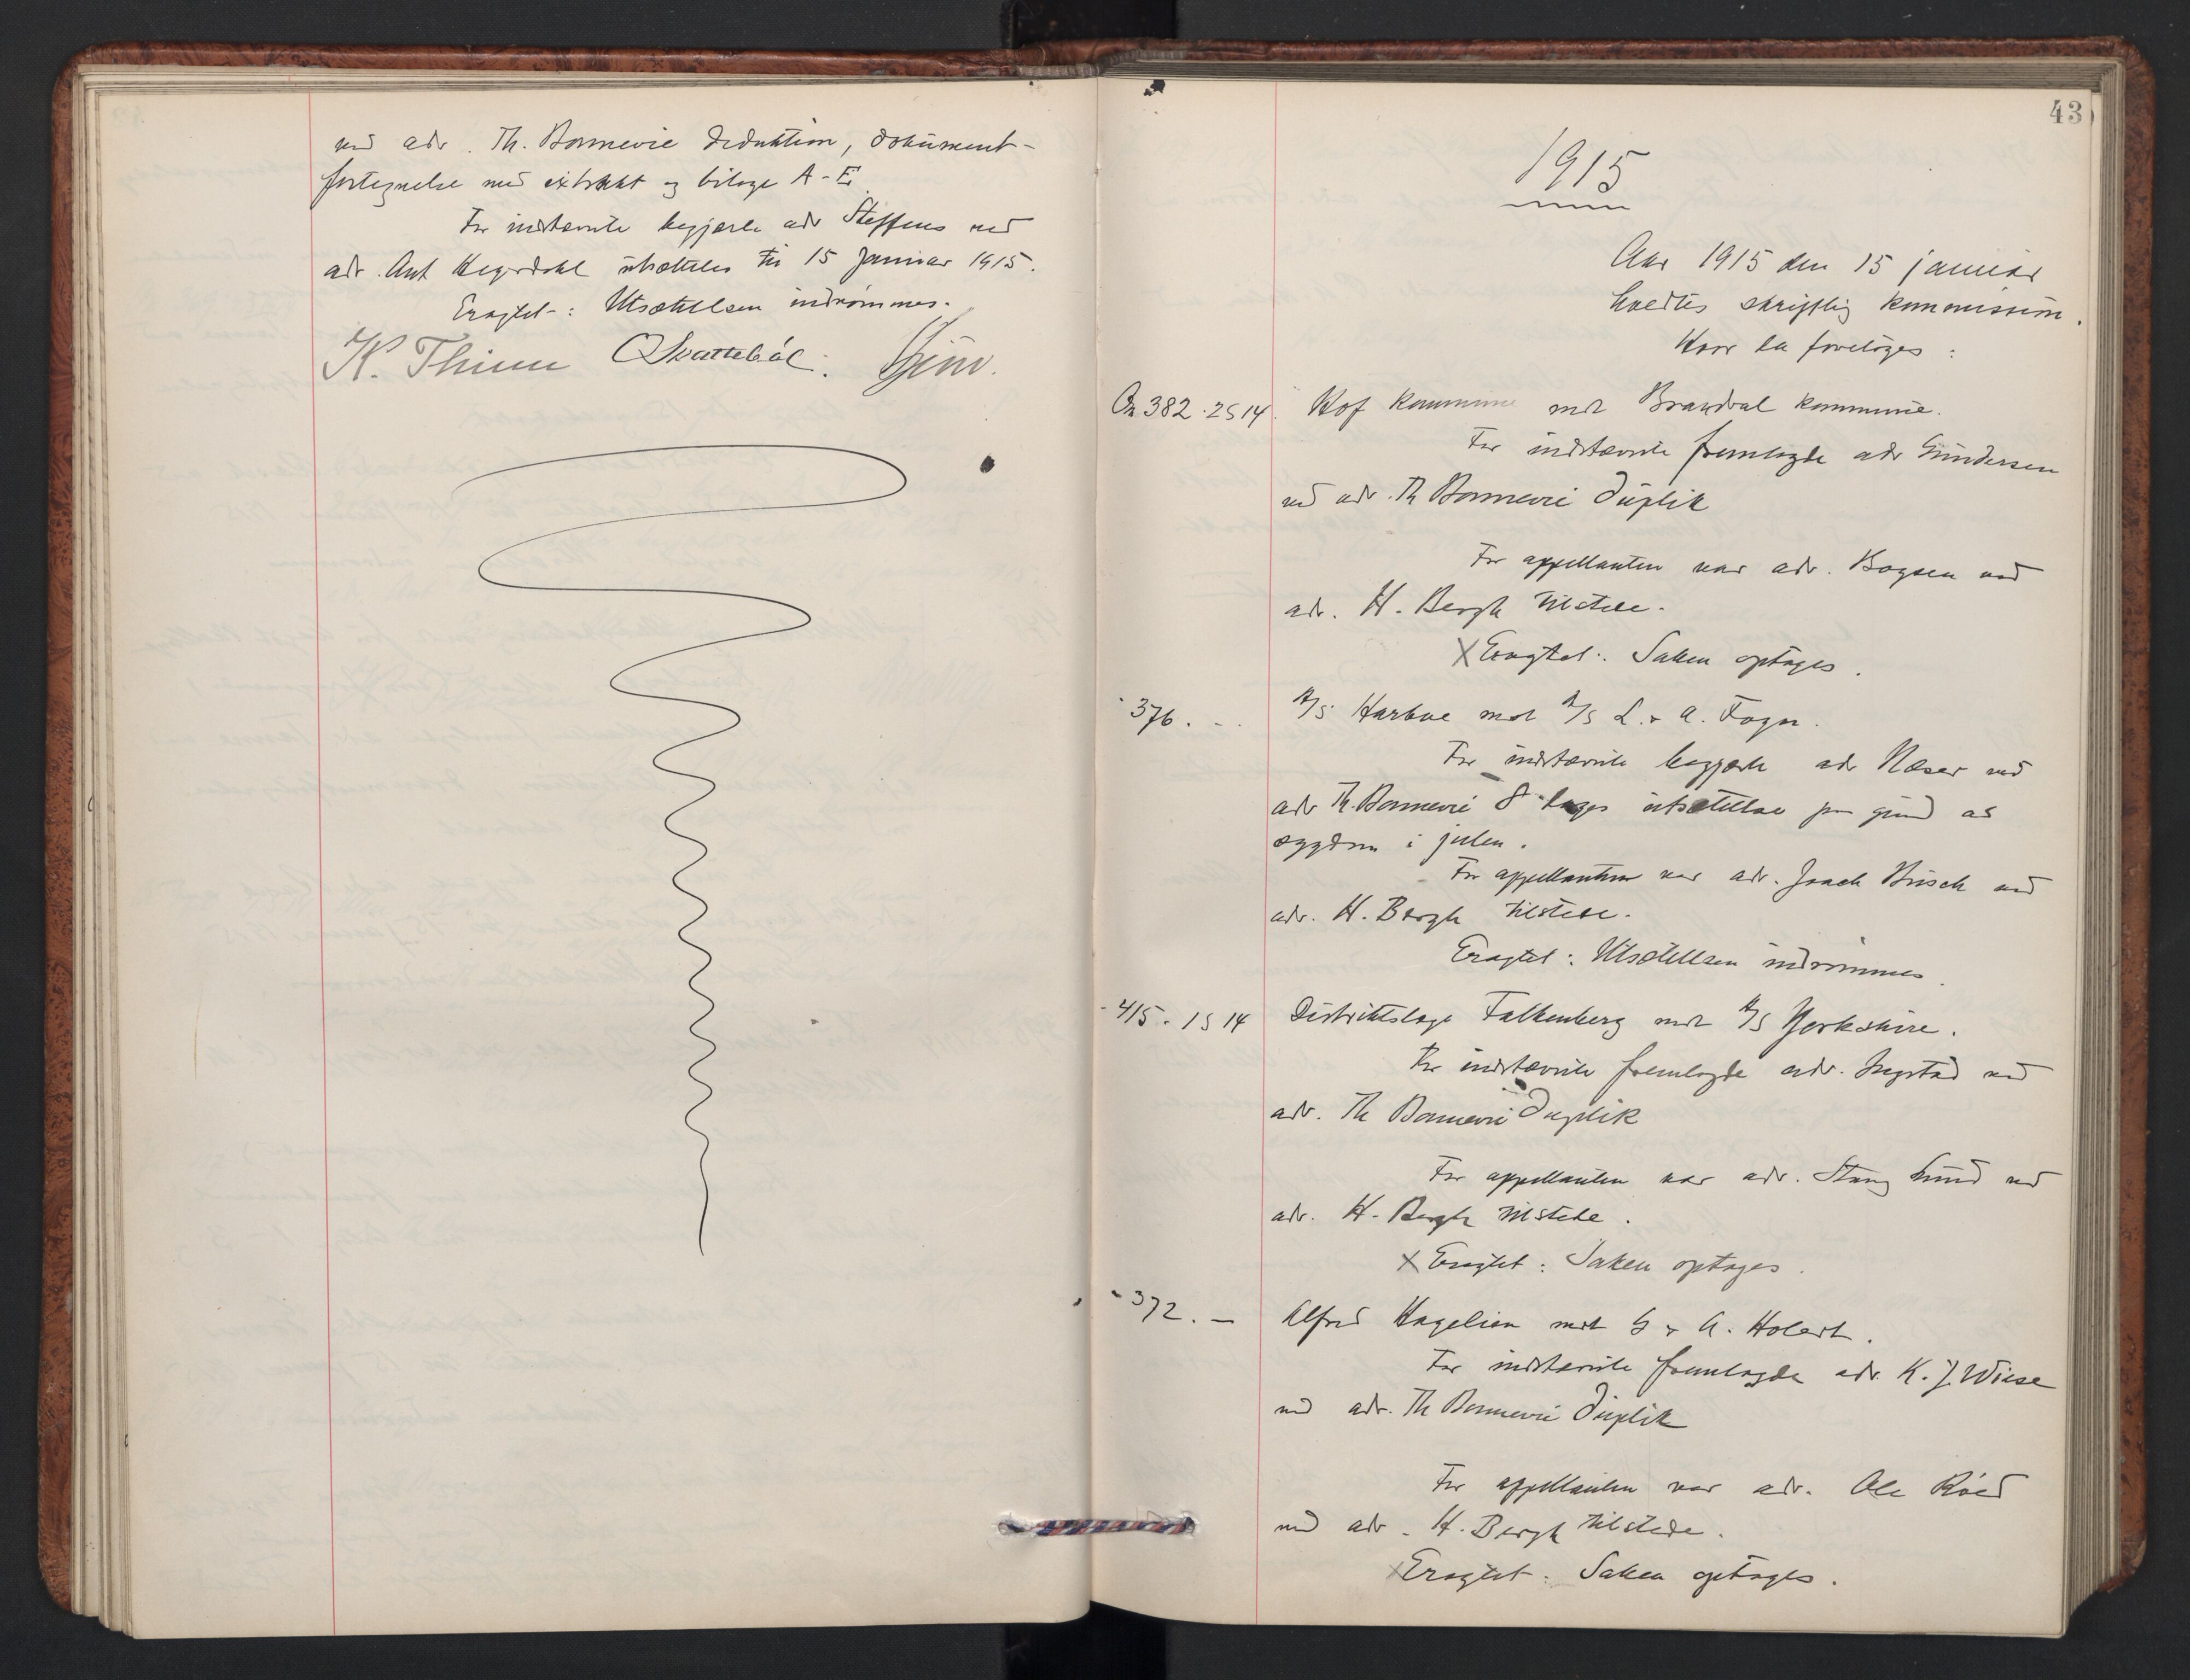 ved adv. Th. Bonnevie deduktion, dokument-
fortegnelse med extrakt og bilage A-E
For indstævnte begjærte adv Steffens ved
adv. Ant utsættelse til 15 januar 1915.
Eragtet: Utsættelsen indrømmes.
K. Thinn Skattebøl.
43
1915
Aar 1915 den 15 januar
holdtes skriftlig kommission.
Hvor da foretoges:
On 382. 2S 14. Hof kommune mot Brandval kommune.
For indstævnte fremlagde adv Gundersen
ved adv. Th Bonnevie Duplik
For appellanten var adv. Boysen ved
adv. H. Bergh tilstede.
X Eragtet: Saken optages.
376. - A/S Harboe mot A/S L. & A. Fogn.
For indstævnte begjærte adv Næser ved
adv Th. Bonnevie 8 dages utsættelse paa grund av
sygdom i julen.
For appellanten var adv. Joach Busch ved
adv. H. Bergh tilstede.
Eragtet: Utsættelsen indrømmes.
- 415. 1S 14 Distriktslage Falkenberg mot A/S Yorkshire.
For indstævnte fremlagde adv. Ingstad ved
adv. Th Bonnevie Duplik
For appellanten var adv. Stang Lund ved
adv. H. Bergh tilstede.
X Eragtet: Saken optages.
- 372. - Alfred Hagelien mot G & A. Holert.
For indstævnte fremlagde adv. K. J. Wiese
ved adv. Th Bonnevie Duplik
For appellanten var adv. Ole Røed
ved adv. H. Bergh tilstede.
X Eragtet: Saken optages.